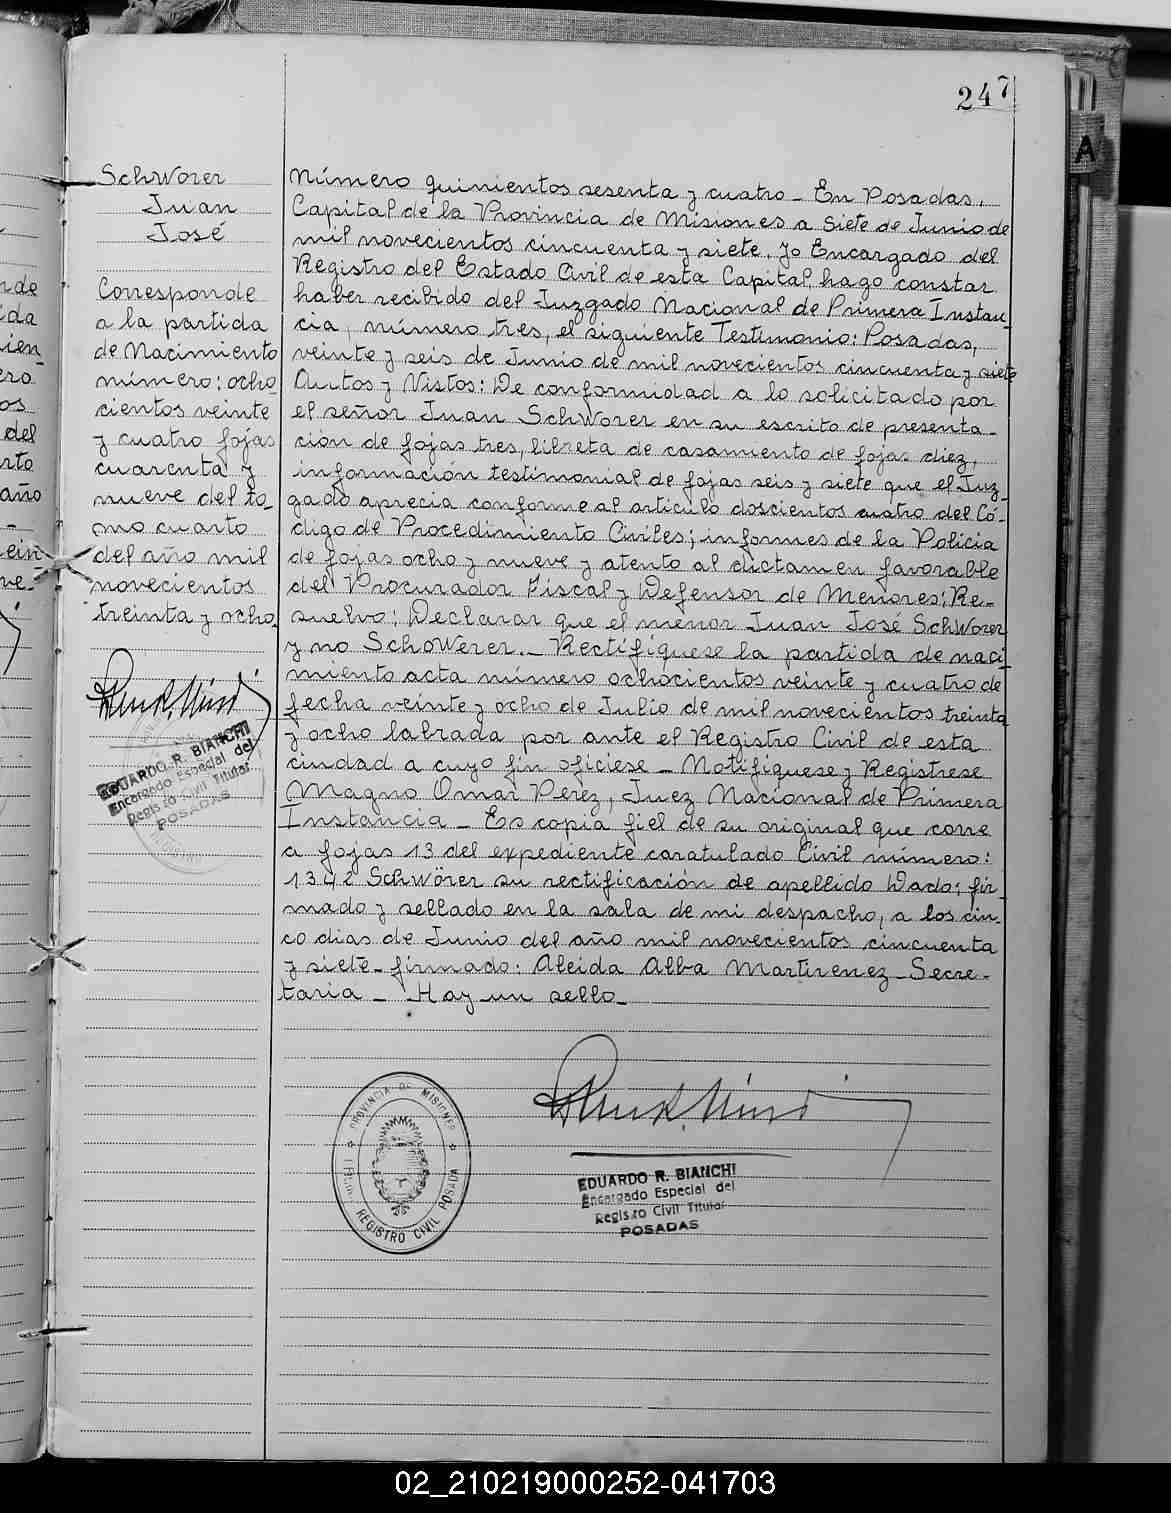 247
Schworer
Juan
José
Corresponde
a la partida
de Nacimiento
número: ocho
cientos veinte
y cuatro fojas
cuarenta y
nueve del to_
mo cuarto
del año mil
novecientos
treinta y ocho.
EDUARDO R. BIANCHI
Encargado Especial del
Registro Civil Titular
POSADAS
Número quinientos sesenta y cuatro_ En Posadas,
Capital de la Provincia de Misiones a siete de Junio de
mil novecientos cincuenta y siete. Yo Encargado del
Registro del Estado Civil de esta Capital, hago constar
haber recibido del Juzgado Nacional de Primera Instan_
cia, número tres, el siguiente Testimonio: Posadas,
veinte y seis de Junio de mil novecientos cincuenta y siete
Autos y Vistos: De conformidad a lo solicitado por
el señor Juan SchWorer en su escrito de presenta_
ción de fojas tres, libreta de casamiento de fojas diez,
información testimonial de fojas seis y siete que el Juz_
gado aprecia conforme al artículo doscientos cuatro del Có_
digo de Procedimiento Civiles; informes de la Policia
de fojas ocho y nueve y atento al dictamen favorable
del Procurador Fiscal y Defensor de Menores; Re_
suelvo: Declarar que el menor Juan José SchWorer
y no SchoWerer._ Rectifíquese la partida de naci_
miento acta número ochocientos veinte y cuatro de
fecha veinte y ocho de Julio de mil novecientos treinta
y ocho labrada por ante el Registro Civil de esta
ciudad a cuyo fin ofíciese_ Notifíquese y Regístrese
Magno Omar Pérez, Juez Nacional de Primera
Instancia_ Es copia fiel de su original que corre
a fojas 13 del expediente caratulado Civil número:
1342 Schwörer su rectificación de apellido Dado; fir_
mado y sellado en la sala de mi despacho, a los cin_
co dias de Junio del año mil novecientos cincuenta
y siete_ firmado: Aleida Alba Martirenez_Secre_
taria_ Hay un sello_
PROVINCIA DE MISIONES
REGISTRO CIVIL POSADA
EDUARDO R. BIANCHI
Encargado Especial del
Registro Civil Titular
POSADAS
02_210219000252-041703
A